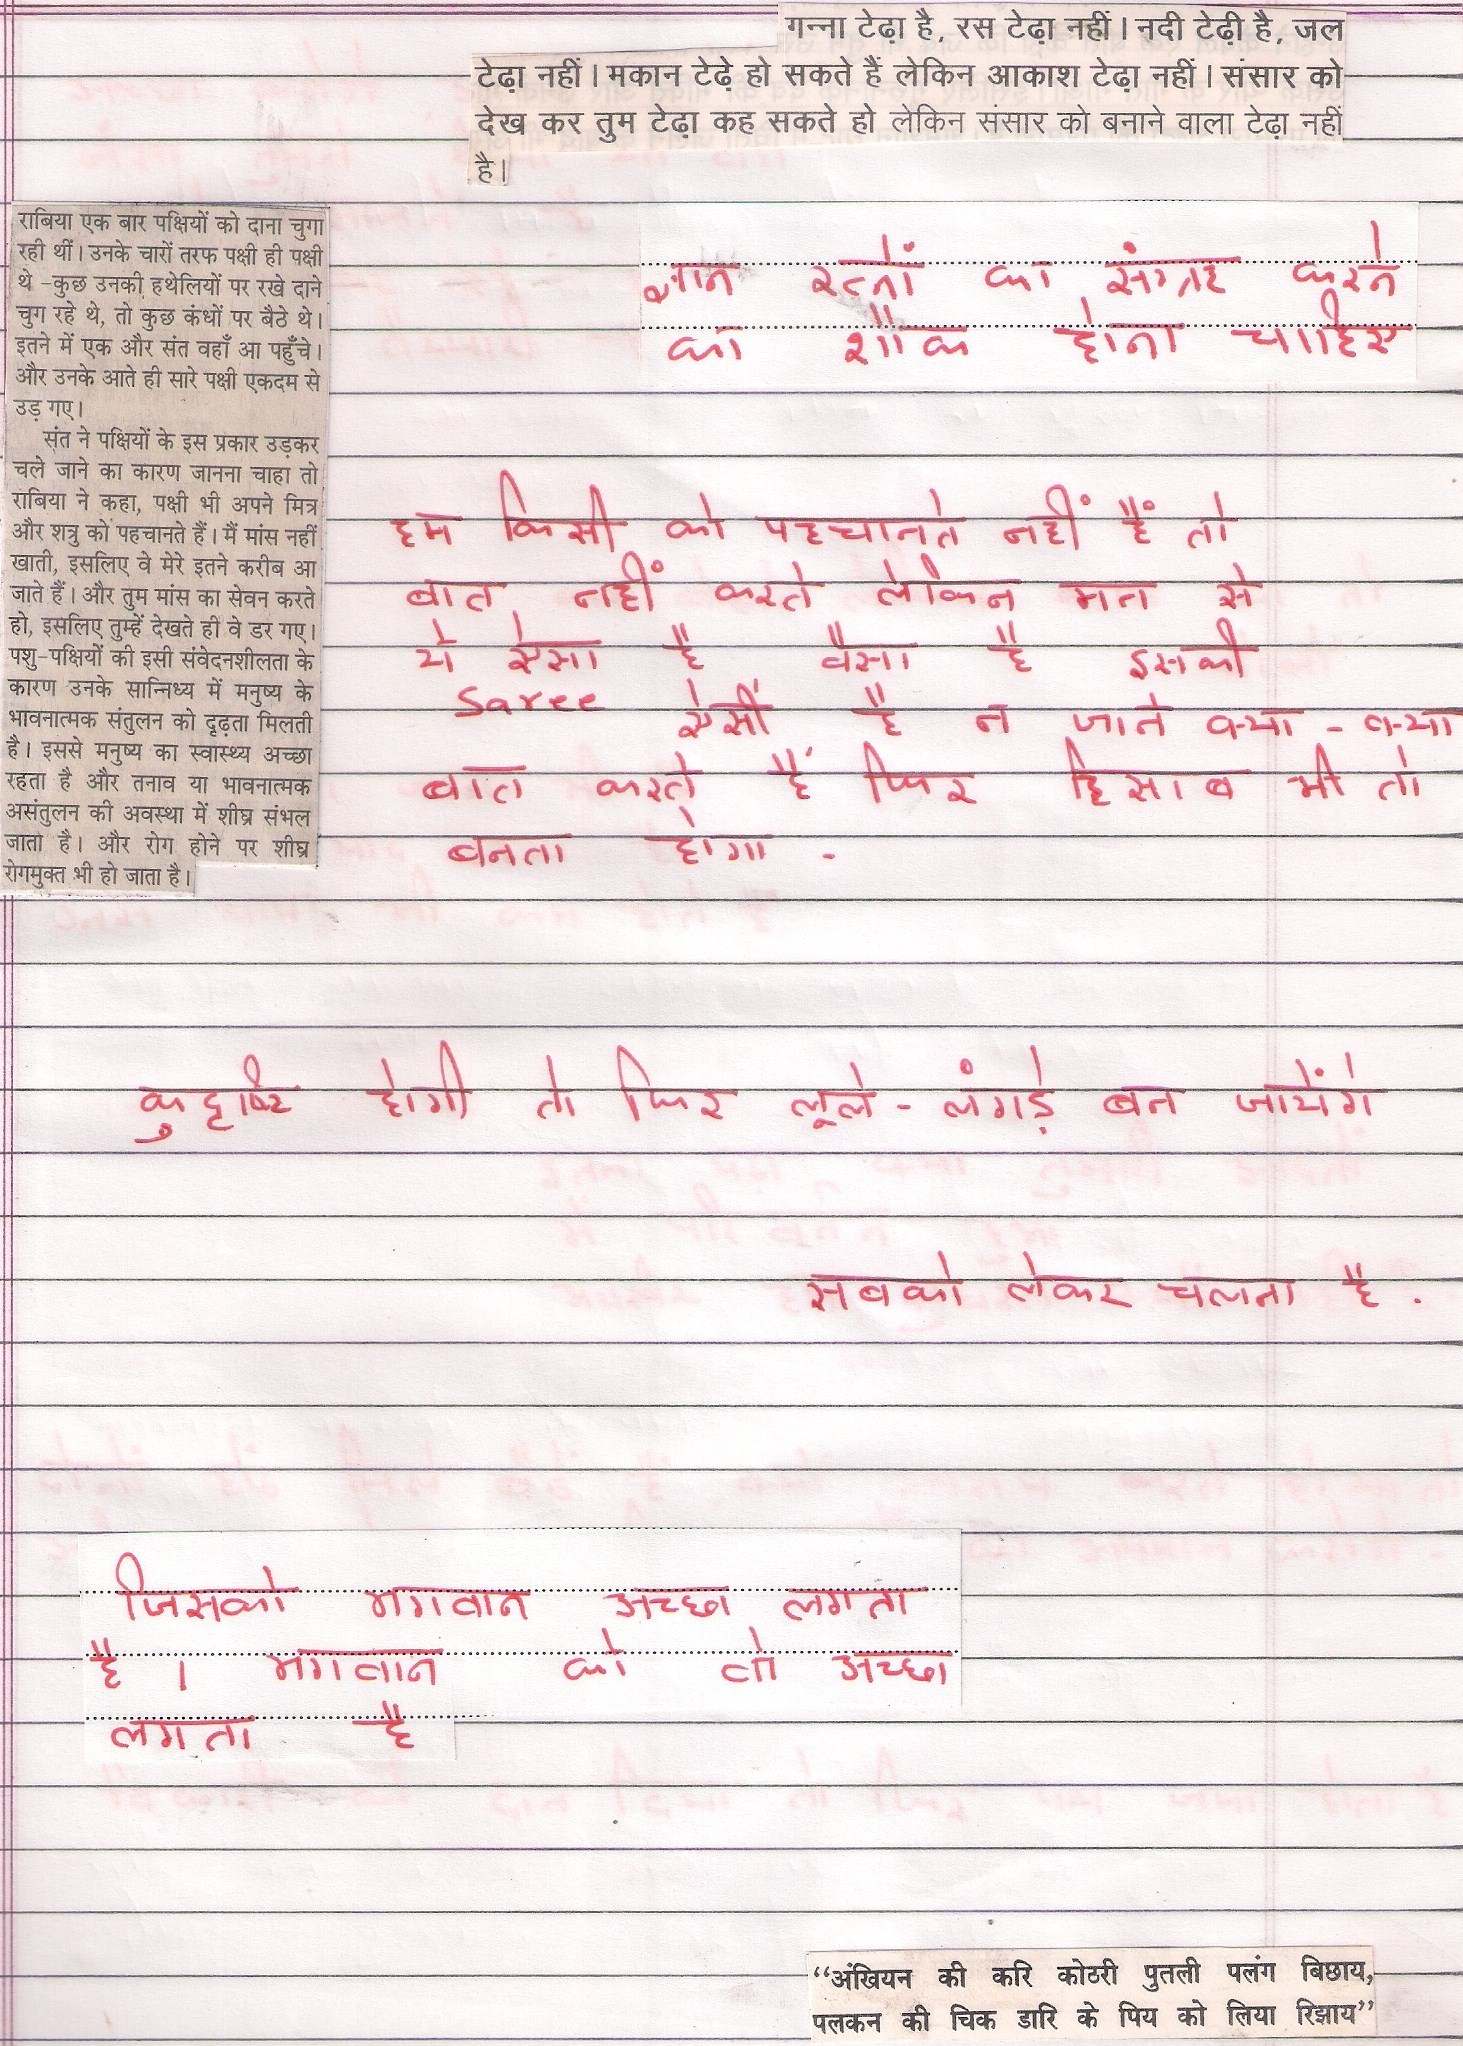 गन्ना टेढ़ा है, रस टेढ़ा नहीं। नदी टेढ़ी है, जल
टेढ़ा नहीं। मकान टेढ़े हो सकते हैं लेकिन आकाश टेढ़ा नहीं। संसार को
देख कर तुम टेढ़ा कह सकते हो लेकिन संसार को बनाने वाला टेढ़ा नहीं
है।
राबिया एक बार पक्षियों को दाना चुगा
रही थीं। उनके चारों तरफ पक्षी ही पक्षी
थे -कुछ उनकी हथेलियों पर रखे दाने
चुग रहे थे, तो कुछ कंधों पर बैठे थे।
इतने में एक और संत वहाँ आ पहुँचे।
और उनके आते ही सारे पक्षी एकदम से
उड़ गए।
संत ने पक्षियों के इस प्रकार उड़कर
चले जाने का कारण जानना चाहा तो
राबिया ने कहा, पक्षी भी अपने मित्र
और शत्रु को पहचानते हैं। मैं मांस नहीं
खाती, इसलिए वे मेरे इतने करीब आ
जाते हैं। और तुम मांस का सेवन करते
हो, इसलिए तुम्हें देखते ही वे डर गए।
पशु-पक्षियों की इसी संवेदनशीलता के
कारण उनके सान्निध्य में मनुष्य के
भावनात्मक संतुलन को दृढ़ता मिलती
है। इससे मनुष्य का स्वास्थ्य अच्छा
रहता है और तनाव या भावनात्मक
असंतुलन की अवस्था में शीघ्र संभल
जाता है। और रोग होने पर शीघ्र
रोगमुक्त भी हो जाता है।
ज्ञान रत्नों का संग्रह करने
का शौक होना चाहिए
हम किसी को पहचानते नहीं हैं तो
बात नहीं करते लेकिन मन से
ये ऐसा है वैसा है इसकी
saree ऐसी है न जाने क्या - क्या
बात करते हैं फिर हिसाब भी तो
बनता होगा .
कुदृष्टि होगी तो फिर लूले - लंगड़े बन जायेंगे
सबको लेकर चलना है .
जिसको भगवान अच्छा लगता
है । भगवान को वो अच्छा
लगता है
“अंखियन की करि कोठरी पुतली पलंग बिछाय,
पलकन की चिक डारि के पिय को लिया रिझाय”